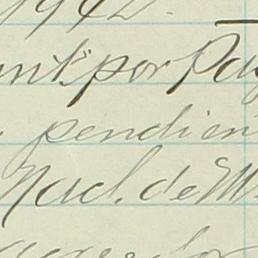 1942.
ant. por Pag
pendien
Nacl. de M